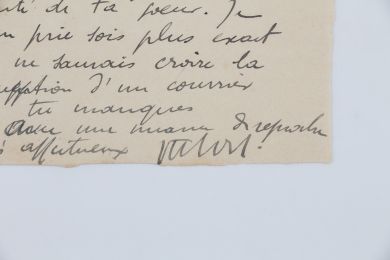 de ta soeur. Je
prie sois plus exact
ne saurais croire la
d'un courrier
tu manques
Avec une nuance de reproche
affectueux